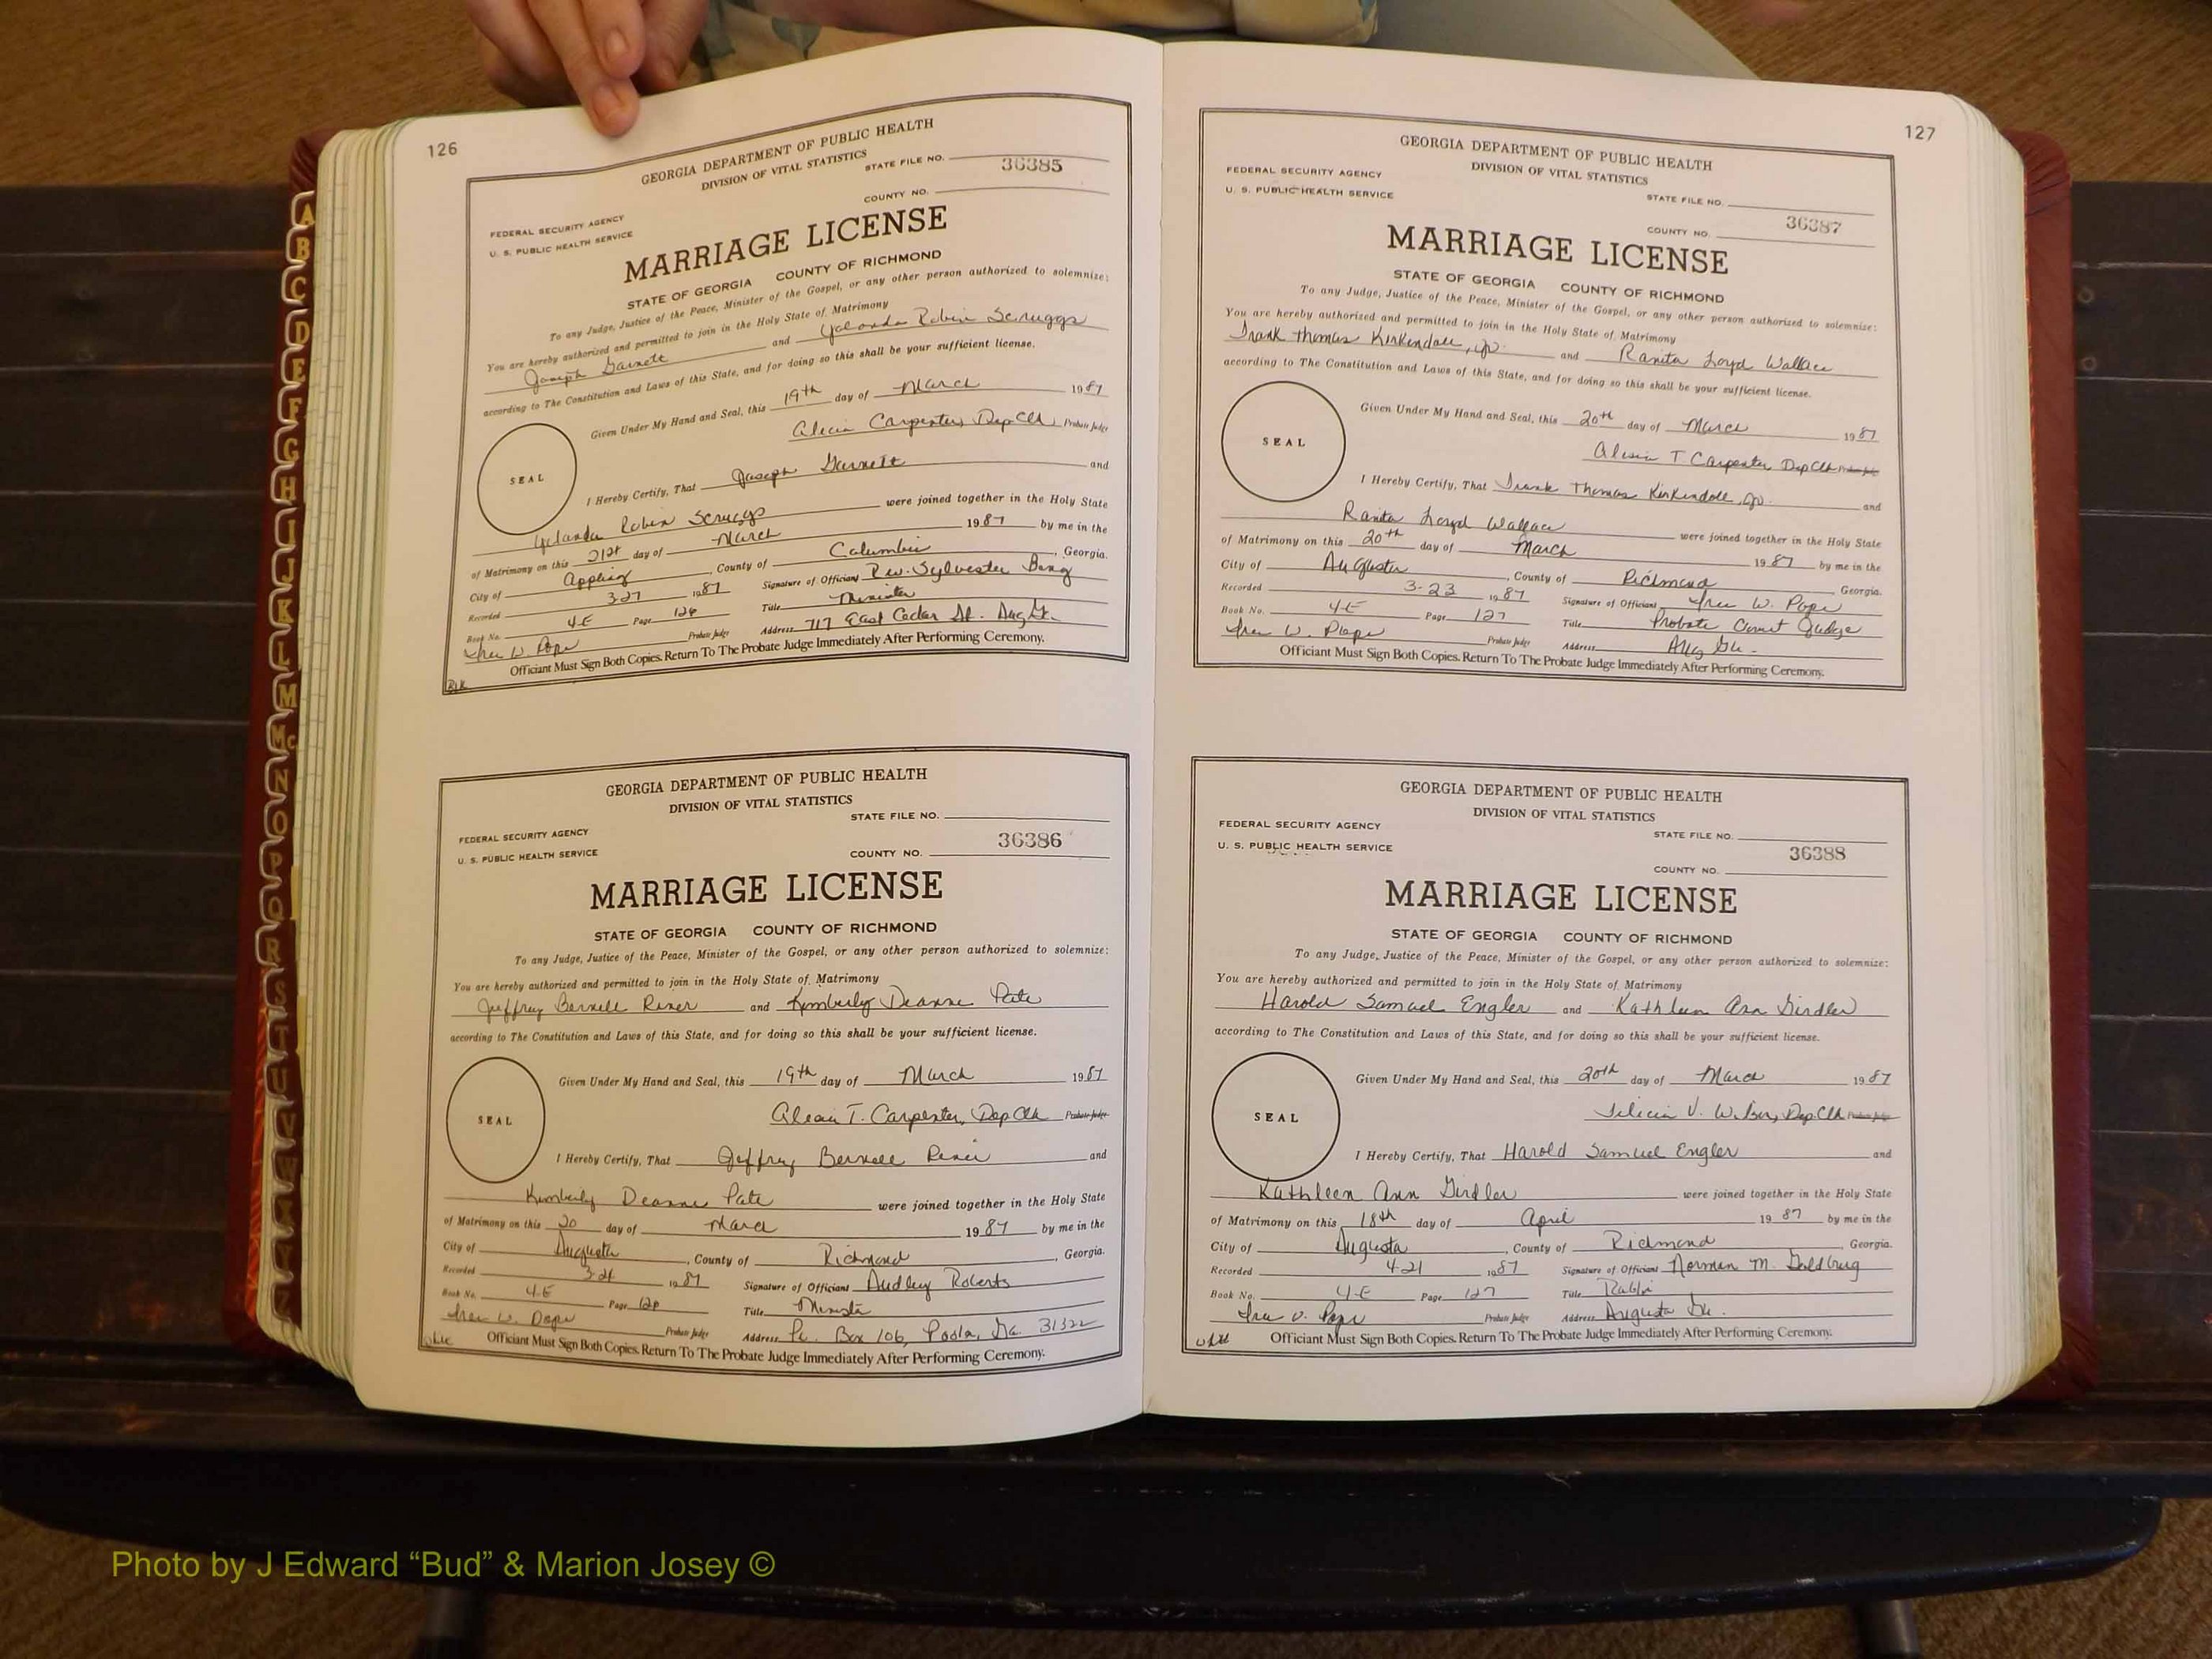 126
GEORGIA DEPARTMENT OF PUBLIC HEALTH
DIVISION OF VITAL STATISTICS
STATE FILE NO.
36385
COUNTY NO.
FEDERAL SECURITY AGENCY
U. S. PUBLIC HEALTH SERVICE
MARRIAGE LICENSE
STATE OF GEORGIA COUNTY OF RICHMOND
To any Judge, Justice of the Peace, Minister of the Gospel, or any other person authorized to solemnize:
You are hereby authorized and permitted to join in the Holy State of Matrimony
Joseph Garnett and Yolanda Robin Scruggs
according to The Constitution and Laws of this State, and for doing so this shall be your sufficient license.
Given Under My Hand and Seal, this 19th day of March 1987
Alecia Carpenter, Dep Clk Probate Judge
SEAL
I Hereby Certify, That Joseph Garnett and
Yolanda Robin Scruggs were joined together in the Holy State
of Matrimony on this 21st day of March 1987 by me in the
City of Appling, County of Columbia, Georgia.
Recorded 3-27 1987 Signature of Officiant Rev. Sylvester
Book No. 4-E Page 126 Title Minister
Probate Judge Address 717 East Cedar St. Aug Ga.
Officiant Must Sign Both Copies. Return To The Probate Judge Immediately After Performing Ceremony.
GEORGIA DEPARTMENT OF PUBLIC HEALTH
DIVISION OF VITAL STATISTICS
STATE FILE NO.
36386
COUNTY NO.
FEDERAL SECURITY AGENCY
U. S. PUBLIC HEALTH SERVICE
MARRIAGE LICENSE
STATE OF GEORGIA COUNTY OF RICHMOND
To any Judge, Justice of the Peace, Minister of the Gospel, or any other person authorized to solemnize:
You are hereby authorized and permitted to join in the Holy State of Matrimony
Jeffrey Bernell and Kimberly Deanne Pate
according to The Constitution and Laws of this State, and for doing so this shall be your sufficient license.
Given Under My Hand and Seal, this 19th day of March 1987
T. Carpenter, Dep Clk Probate Judge
SEAL
I Hereby Certify, That Jeffrey Bernell and
Kimberly Deanne Pate were joined together in the Holy State
of Matrimony on this 20 day of March 1987 by me in the
City of Augusta, County of Richmond, Georgia.
Recorded 1987 Signature of Officiant Audley Roberts
Book No. 4-E Page 126 Title Minister
Probate Judge Address Box 106, Ga. 31322
Officiant Must Sign Both Copies. Return To The Probate Judge Immediately After Performing Ceremony.
127
GEORGIA DEPARTMENT OF PUBLIC HEALTH
DIVISION OF VITAL STATISTICS
FEDERAL SECURITY AGENCY
U. S. PUBLIC HEALTH SERVICE
STATE FILE NO.
36387
COUNTY NO.
MARRIAGE LICENSE
STATE OF GEORGIA COUNTY OF RICHMOND
To any Judge, Justice of the Peace, Minister of the Gospel, or any other person authorized to solemnize:
You are hereby authorized and permitted to join in the Holy State of Matrimony
Frank Thomas Kirkendoll, Jr. and Ranita Loyd Wallace
according to The Constitution and Laws of this State, and for doing so this shall be your sufficient license.
Given Under My Hand and Seal, this 20th day of March 1987
T Carpenter Dep Clk Probate Judge
SEAL
I Hereby Certify, That Frank Thomas Kirkendoll, Jr. and
Ranita Loyd Wallace were joined together in the Holy State
of Matrimony on this 20th day of March 1987 by me in the
City of Augusta, County of Richmond Georgia.
Recorded 3-23 1987 Signature of Officiant W. Pope
Book No. 4-E Page 127 Title Probate Court Judge
W. Pope Probate Judge Address Aug Ga.
Officiant Must Sign Both Copies. Return To The Probate Judge Immediately After Performing Ceremony.
GEORGIA DEPARTMENT OF PUBLIC HEALTH
DIVISION OF VITAL STATISTICS
FEDERAL SECURITY AGENCY
U. S. PUBLIC HEALTH SERVICE
STATE FILE NO.
36388
COUNTY NO.
MARRIAGE LICENSE
STATE OF GEORGIA COUNTY OF RICHMOND
To any Judge, Justice of the Peace, Minister of the Gospel, or any other person authorized to solemnize:
You are hereby authorized and permitted to join in the Holy State of Matrimony
Harold Samuel Engler and Kathleen Ann Girdler
according to The Constitution and Laws of this State, and for doing so this shall be your sufficient license.
Given Under My Hand and Seal, this 20th day of March 1987
Felicia V. Dep Clk Probate Judge
SEAL
I Hereby Certify, That Harold Samuel Engler and
Kathleen Ann Girdler were joined together in the Holy State
of Matrimony on this 18th day of April 1987 by me in the
City of Augusta, County of Richmond Georgia.
Recorded 4-21 1987 Signature of Officiant Norman M. Goldburg
Book No. 4-E Page 127 Title Rabbi
Probate Judge Address Augusta Ga.
Officiant Must Sign Both Copies. Return To The Probate Judge Immediately After Performing Ceremony.
A
B
C
D
E
F
G
H
I
J
K
L
M
Mc
N
O
P
Q
R
S
T
U
V
Photo by J Edward “Bud” & Marion Josey ©